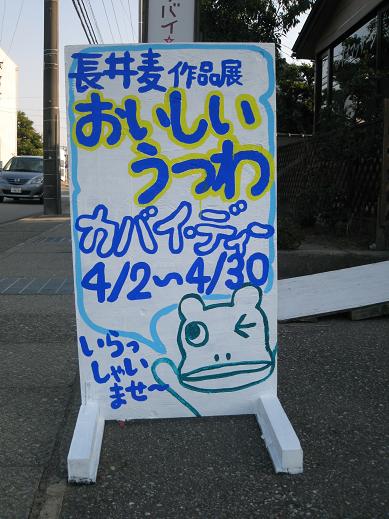 バイ☆
長井麦 作品展
おいしい
うつわ
カバイ・ディー
4/2〜4/30
いらっ
しゃい
ませ〜